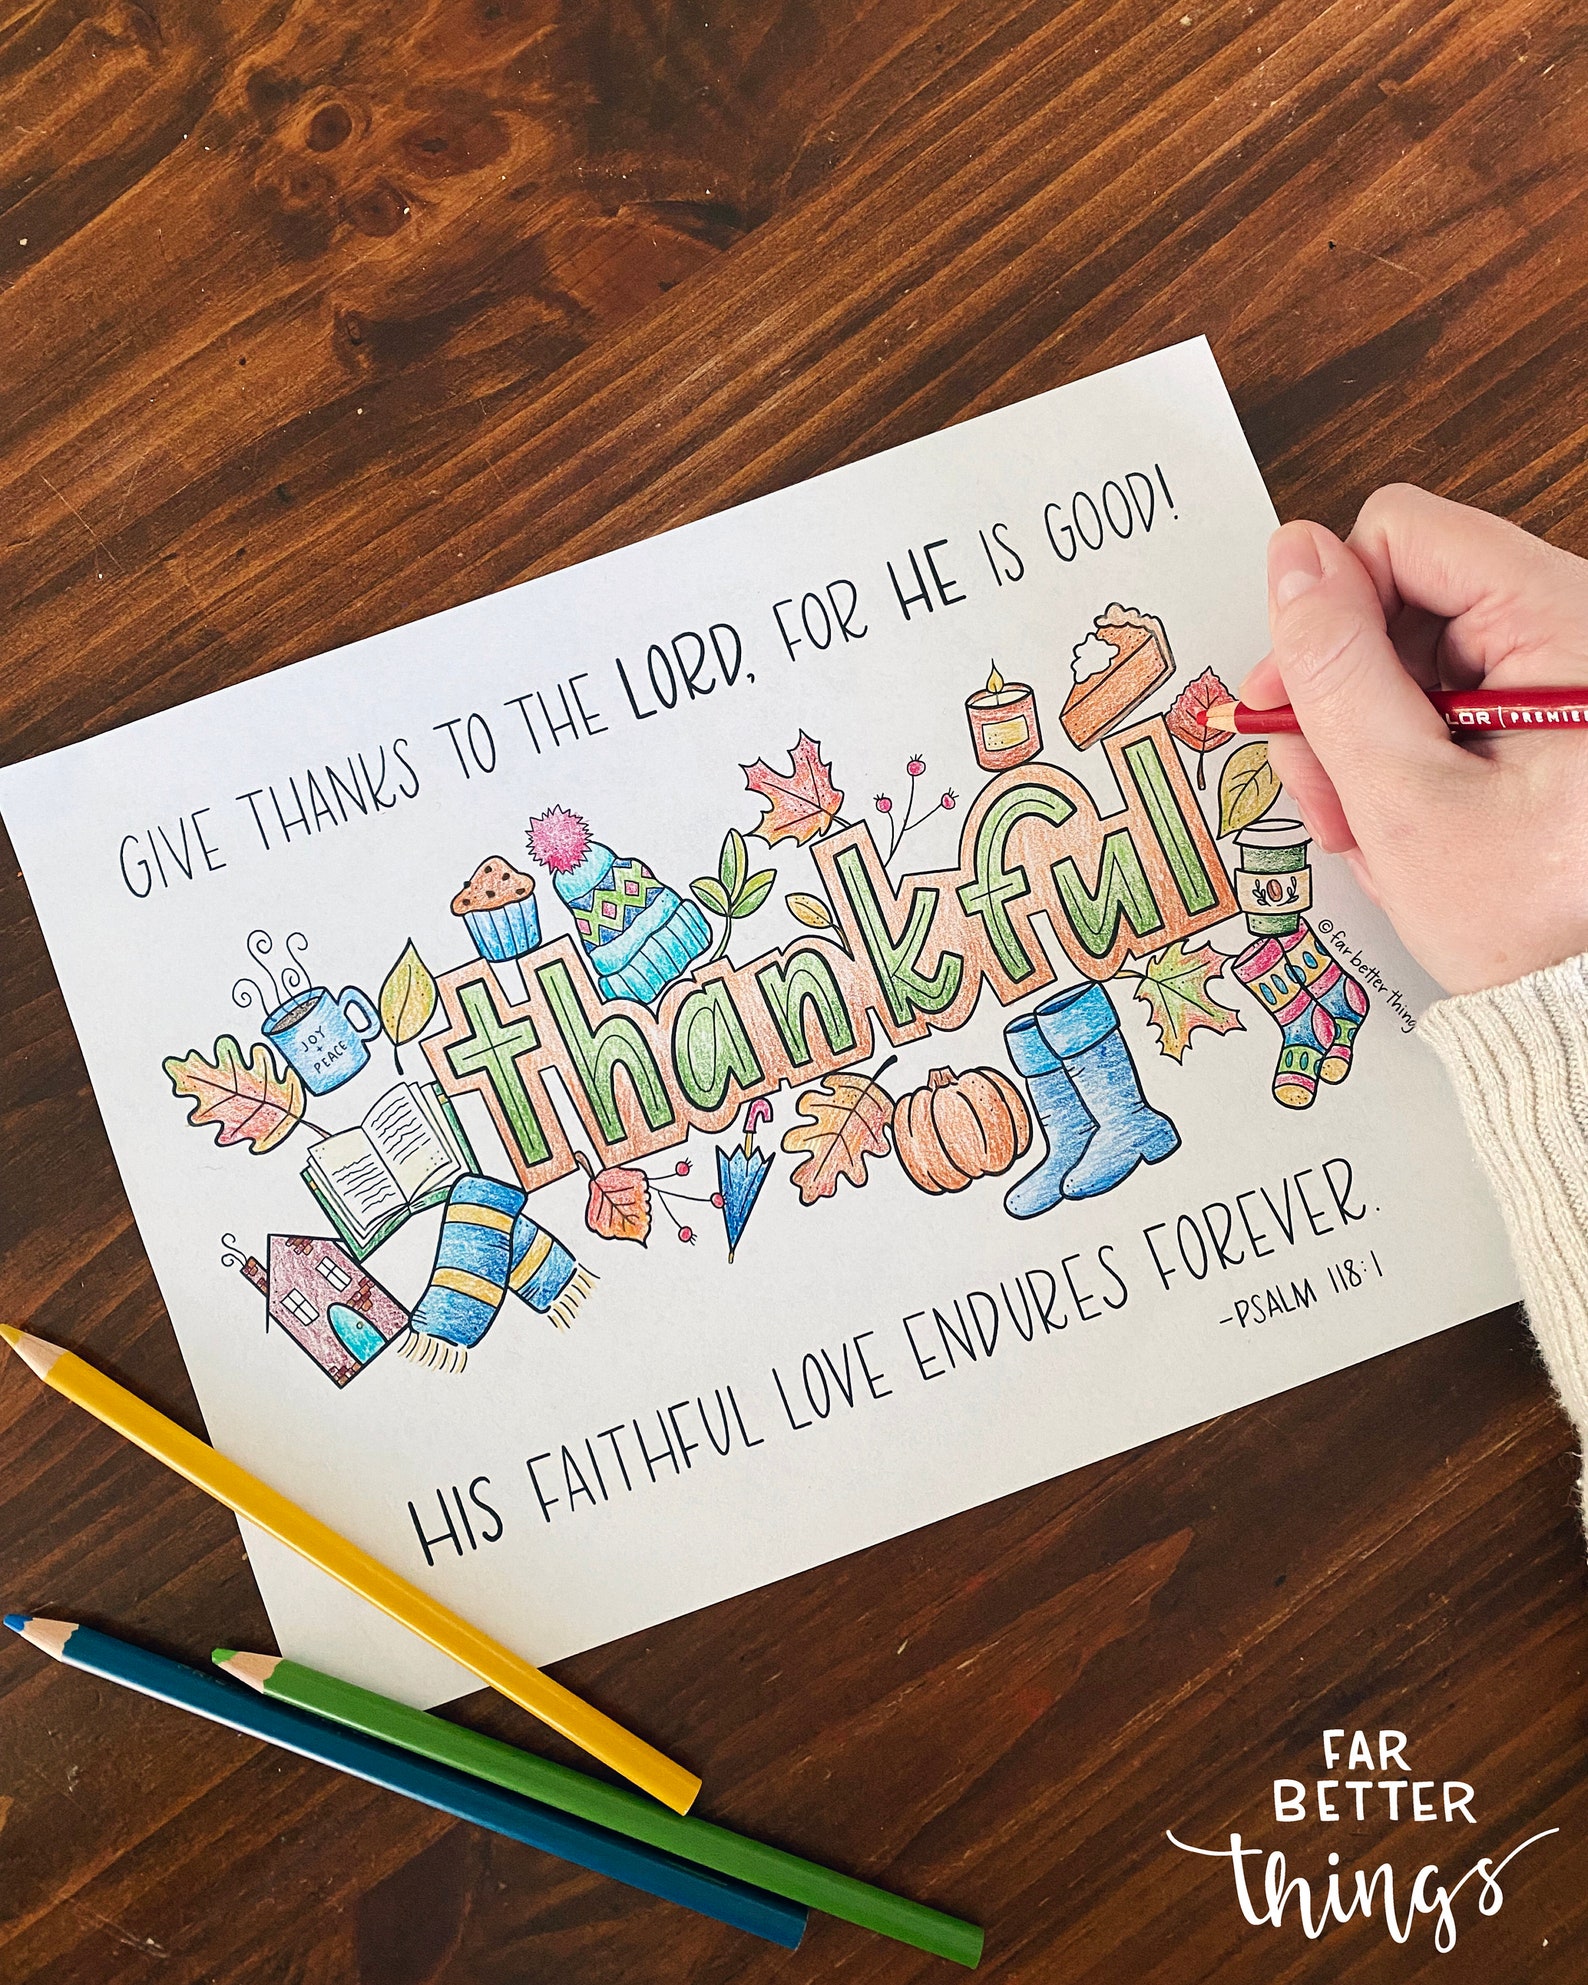 GIVE THANKS TO THE LORD, FOR HE IS GOOD!
JOY
+
PEACE
thankful
LOR | PREMIE
© far better things
HIS FAITHFUL LOVE ENDURES FOREVER.
-PSALM 118:1
FAR
BETTER
things